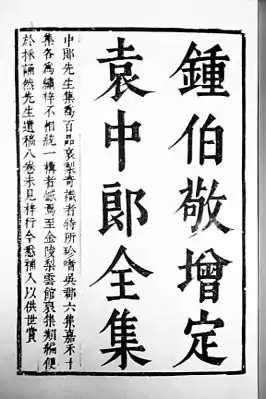 鍾伯敬增定
袁中郎全集
中郎先生集為百品哀梨奇識者特所珍嗜吳郡六集嘉禾十
集各為繡梓不相統一搆者憾焉至金陵梨雲館裒集類編便
於採誦然先生遺稿八卷未見梓行今悉補入以供世賞